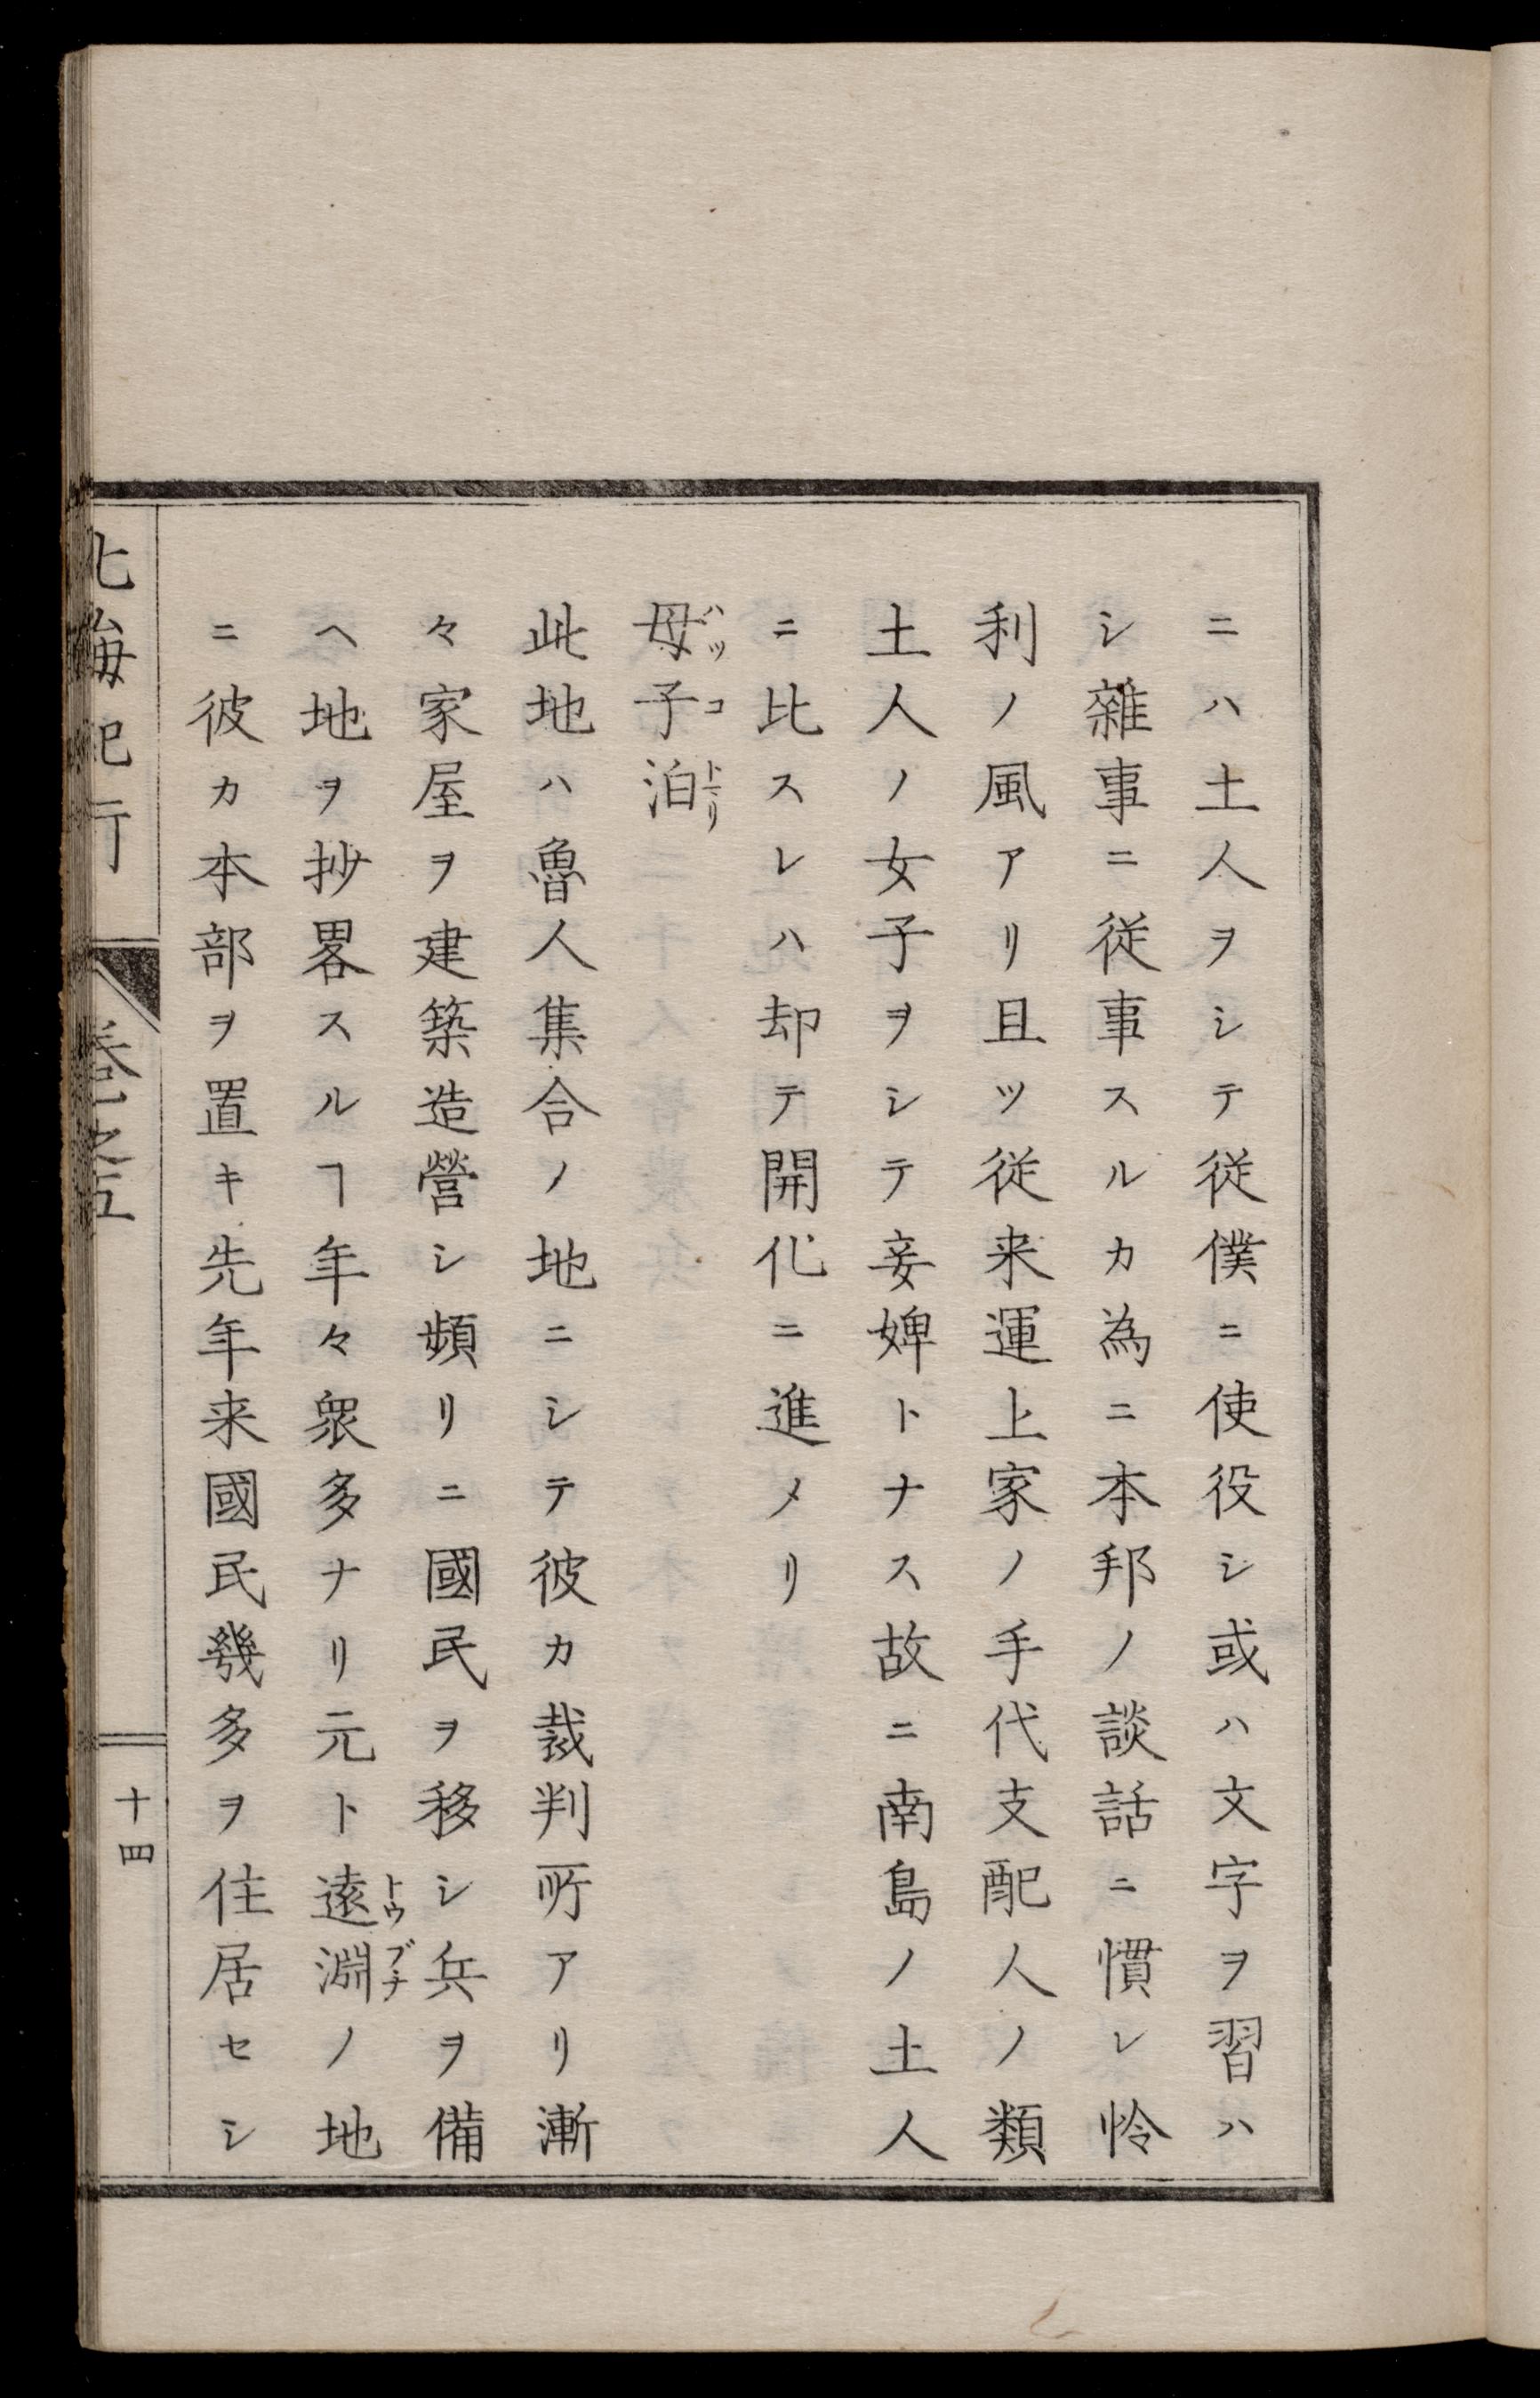 ニハ土人ヲシテ従僕ニ使役シ或ハ文字ヲ習ハ
シ雜事ニ従事スルカ為ニ本邦ノ談話ニ慣レ怜
利ノ風アリ且ツ従来運上家ノ手代支配人ノ類
土人ノ女子ヲシテ妾婢トナス故ニ南島ノ土人
ニ比スレハ却テ開化ニ進メリ
母子泊
ハツコトマリ
此地ハ魯人集合ノ地ニシテ彼カ裁判所アリ漸
々家屋ヲ建築造營シ頻リニ國民ヲ移シ兵ヲ備
ヘ地ヲ抄畧スルヿ年々衆多ナリ元ト遠淵ノ地
トウブチ
ニ彼カ本部ヲ置キ先年来國民幾多ヲ住居セシ
北海紀行
巻之五
十四